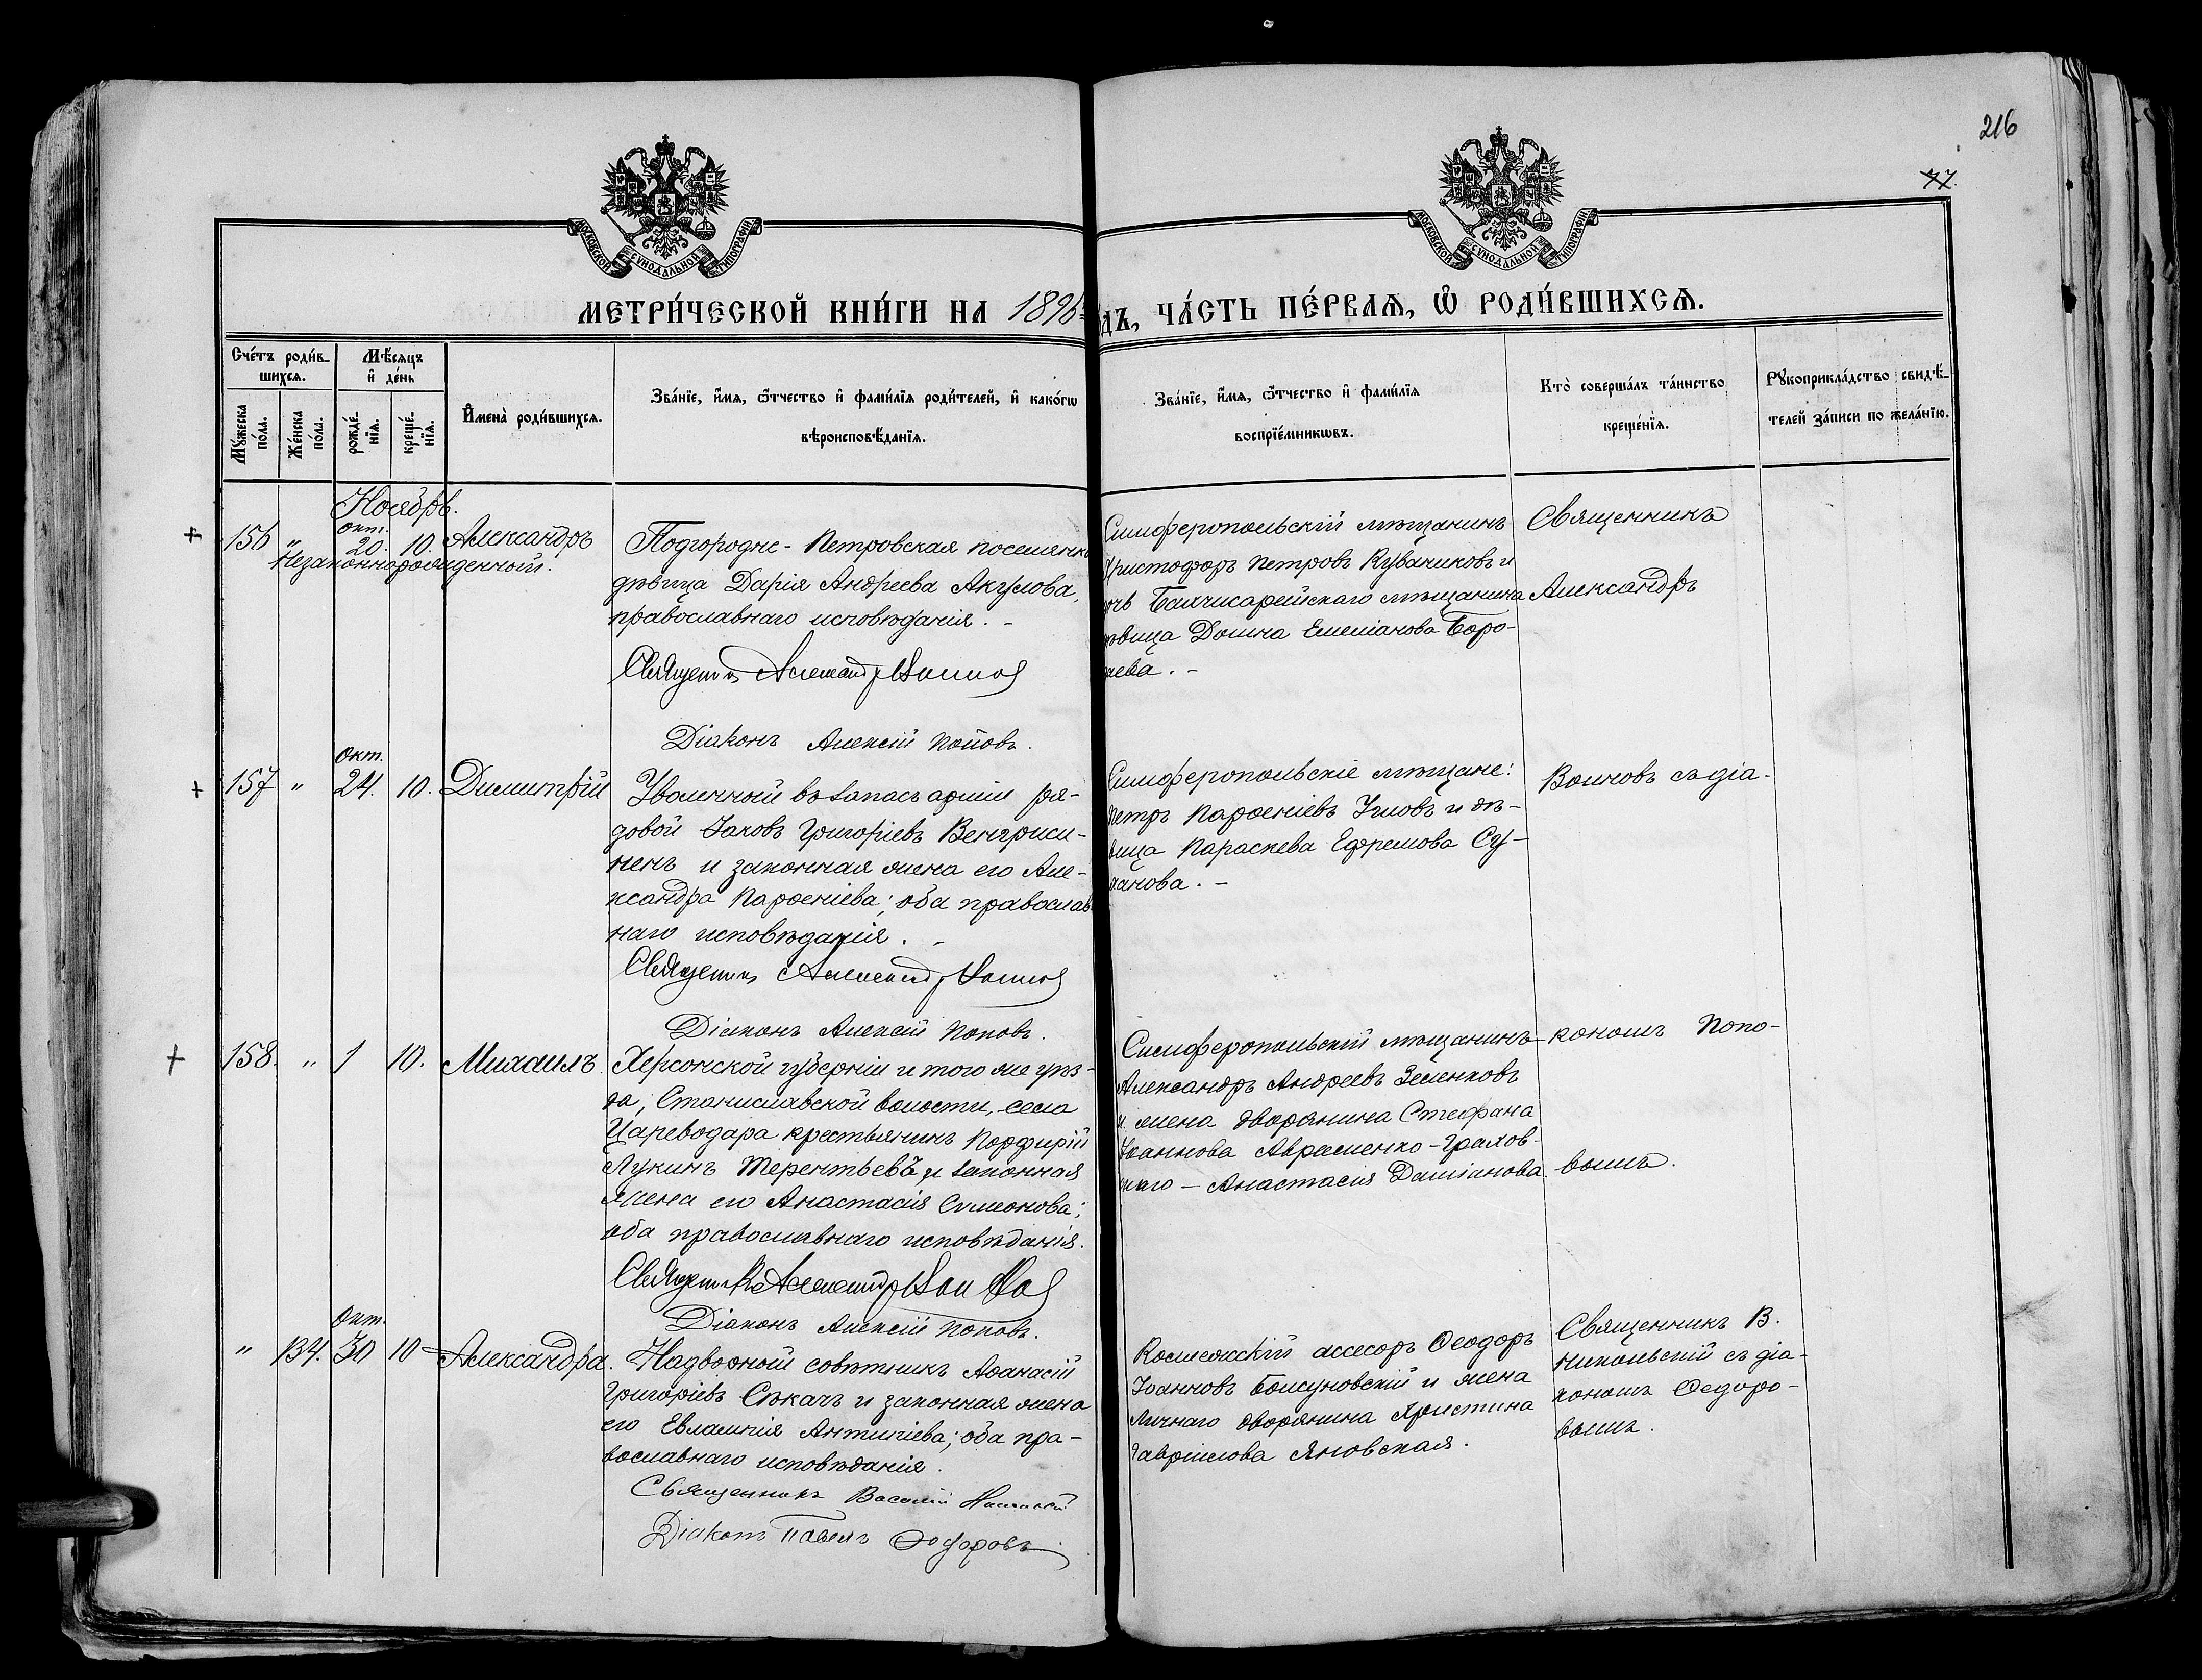 216
77.
МОСКОВСКОЙ СѴНОДАЛЬНОЙ ТИПОГРАФІИ
МОСКОВСКОЙ СѴНОДАЛЬНОЙ ТИПОГРАФІИ
МЕТРИ́ЧЕСКОЙ КНИ́ГИ НА 1896
ДЪ, ЧА́СТЬ ПЕ́РВАѦ, Ѡ҆ РОДИ́ВШИХСѦ.
Сче́тъ роди́в-
шихсѧ.
Мꙋ́жеска по́ла.
Же́нска по́ла.
Мѣ́сѧцъ
и҆ де́нь
рожде́-нїѧ.
креще́-нїѧ.
И҆мена̀ роди́вшихсѧ.
Зва́нїе, и҆́мѧ, ѻ҆́тчество и҆ фами́лїѧ роди́телей, и҆ како́гѡ
вѣроисповѣ́данїѧ.
Зва́нїе, и҆́мѧ, ѻ҆́тчество и҆ фами́лїѧ
воспрїе́мникѡвъ.
Кто̀ соверша́лъ та́инство
креще́нїѧ.
Рꙋкоприкла́дство свидѣ́-
телей за́писи по жела́нїю.
Ноябрь.
156 " окт. 20. 10. Александръ
Незаконнорожденный.
Подгородне-Петровская поселянка
дѣвица Дарія Андреева Акулова,
православнаго исповѣданія. -
Священникъ Александръ Воиновъ
Діаконъ Алексій Поповъ.
Симферопольскій мѣщанинъ
Христофоръ Петровъ Куваниковъ и
очь Бахчисарейскаго мѣщанина
ѣвица Домна Емеліанова Боро-
аева. -
Священникъ
Александръ
157 " окт. 24. 10. Димитрій
Уволенный въ запасъ арміи ря-
довой Іаковъ Григоріевъ Венгриси-
ненъ и законная жена его Але-
ксандра Парѳеніева; оба православ
наго исповѣданія. -
Священникъ Александръ Воиновъ
Діаконъ Алексій Поповъ.
Симферопольскіе мѣщане:
Петръ Парѳеніевъ Умовъ и дѣ-
вица Параскева Ефремова Су-
ханова. -
Воиновъ съ діа-
158. " 1 10. Михаилъ.
Херсонской губерніи и того же уѣз-
да, Станиславской волости, села
Цареводара крестьянинъ Порфирій
Лукинъ Терентьевъ и законная
жена его Анастасія Симонова;
оба православнаго исповѣданія.
Священникъ Александръ Воиновъ
Діаконъ Алексій Поповъ.
Симферопольскій мѣщанинъ
Александръ Андреевъ Зеленковъ
и жена дворянина Стефана
Іоаннова Авраменко-Грахов-
скаго - Анастасія Даміанова.
кономъ Попо-
вымъ.
" 134. окт. 30 10 Александра.
Надворный совѣтникъ Аѳанасій
Григоріевъ Сѣкачъ и законная жена
его Евлампія Антипіева; оба пра-
вославнаго исповѣданія.
Священникъ Василій Никольскій
Діаконъ Павелъ Ѳедоровъ
Коллежскій ассесоръ Ѳеодоръ
Іоанновъ Болсуновскій и жена
личнаго дворянина Христина
Гавріилова Яновская.
Священникъ В.
Никольскій съ діа-
кономъ Ѳедоро-
вымъ.